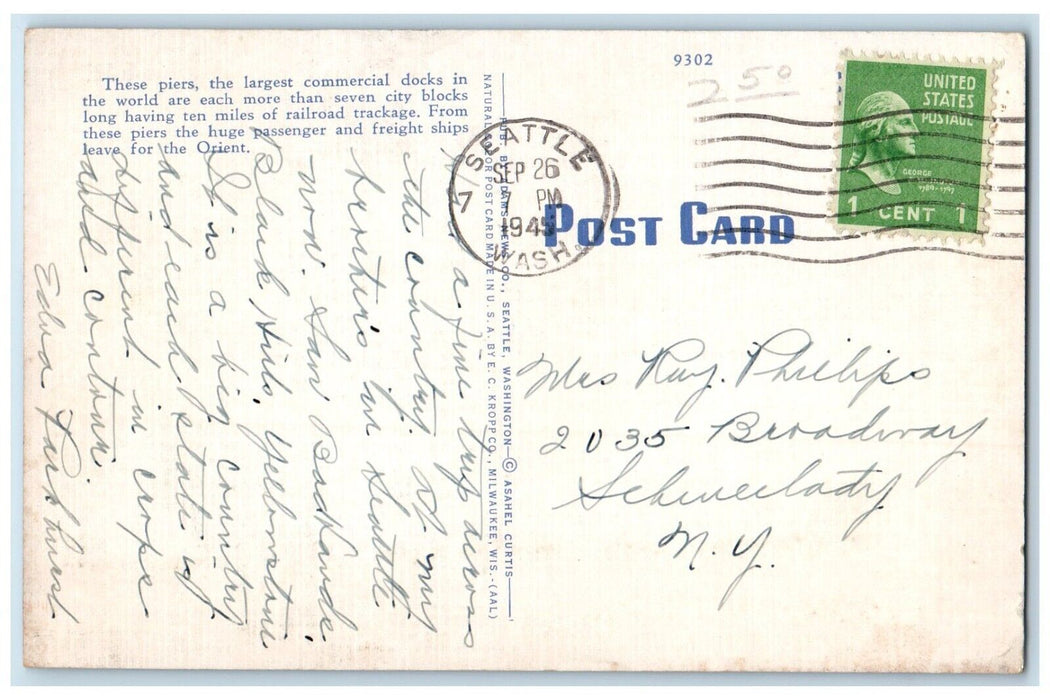 9302
2 50
These piers, the largest commercial docks in
the world are each more than seven city blocks
long having ten miles of railroad trackage. From
these piers the huge passenger and freight ships
leave for the Orient.
SEATTLE
SEP 26
7 PM
1945
WASH
UNITED
STATES
POSTAGE
GEORGE
1789-1797
1 CENT 1
POST CARD
a fine trip across
the country. At my
brother's in Seattle
now. Saw Badlands
Black Hills, Yellowstone
It is a big country
and each state is
different in crops
and contour.
Edna Parkhurst
PUB. BY ADAMS NEWS CO., SEATTLE, WASHINGTON—© ASAHEL CURTIS
NATURAL COLOR POST CARD MADE IN U. S. A. BY E. C. KROPP CO., MILWAUKEE, WIS.-(AAL)
Mrs Ray. Philips
2035 Broadway
Schnectady
N. Y.